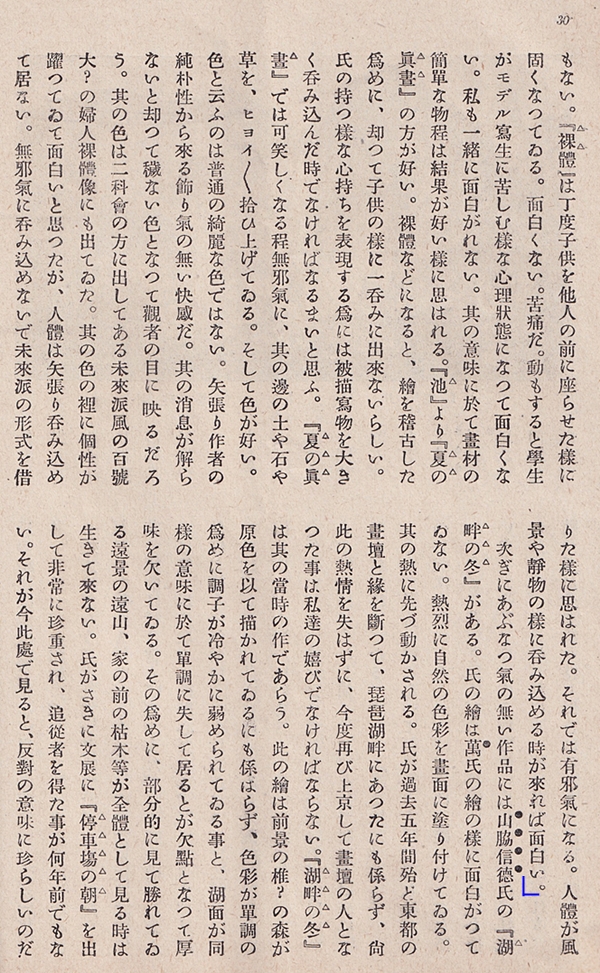 30
もない。『裸體』は丁度子供を他人の前に座らせた樣に
固くなつてゐる。面白くない。苦痛だ。動もすると學生
がモデル寫生に苦しむ樣な心理狀態になつて面白くな
い。私も一緒に面白がれない。其の意味に於て畫材の
簡單な物程は結果が好い樣に思はれる。『池』より『夏の
眞畫』の方が好い。裸體などになると、繪を稽古した
爲めに、却つて子供の樣に一呑みに出來ないらしい。
氏の持つ樣な心持ちを表現する爲には被描寫物を大き
く呑み込んだ時でなければなるまいと思ふ。『夏の眞
畫』では可笑しくなる程無邪氣に、其の邊の土や石や
草を、ヒョイ〱拾ひ上げてゐる。そして色が好い。
色と云ふのは普通の綺麗な色ではない。矢張り作者の
純朴性から來る飾り氣の無い快感だ。其の消息が解ら
ないと却つて穢ない色となつて觀者の目に映るだろ
う。其の色は二科會の方に出してある未來派風の百號
大?の婦人裸體像にも出てゐた。其の色の裡に個性が
躍つてゐて面白いと思つたが、人體は矢張り呑み込め
て居ない。無邪氣に呑み込めないで未來派の形式を借
りた樣に思はれた。それでは有邪氣になる。人體が風
景や靜物の樣に呑み込める時が來れば面白い。
次ぎにあぶなつ氣の無い作品には山脇信德氏の『湖
畔の冬』がある。氏の繪は萬氏の繪の樣に面白がつて
ゐない。熱烈に自然の色彩を畫面に塗り付けてゐる。
其の熱に先づ動かされる。氏が過去五年間殆ど東都の
畫壇と緣を斷つて、琵琶湖畔にあつたにも係らず、尙
此の熱情を失はずに、今度再び上京して畫壇の人とな
つた事は私達の嬉びでなければならない。『湖畔の冬』
は其の當時の作であらう。此の繪は前景の椎?の森が
原色を以て描かれてゐるにも係はらず、色彩が單調の
爲めに調子が冷やかに弱められてゐる事と、湖面が同
樣の意味に於て單調に失して居るとが欠點となつて厚
味を欠いてゐる。その爲めに、部分的に見て勝れてゐ
る遠景の遠山、家の前の枯木等が全體として見る時は
生きて來ない。氏がさきに文展に『停車塲の朝』を出
して非常に珍重され、追從者を得た事が何年前でもな
い。それが今此處で見ると、反對の意味に珍らしいのだ